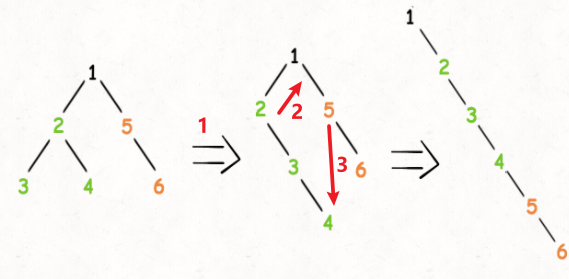 1
2 5
3 4 6
1
1
2 2 5
3 3 6
4
1
2
3
4
5
6